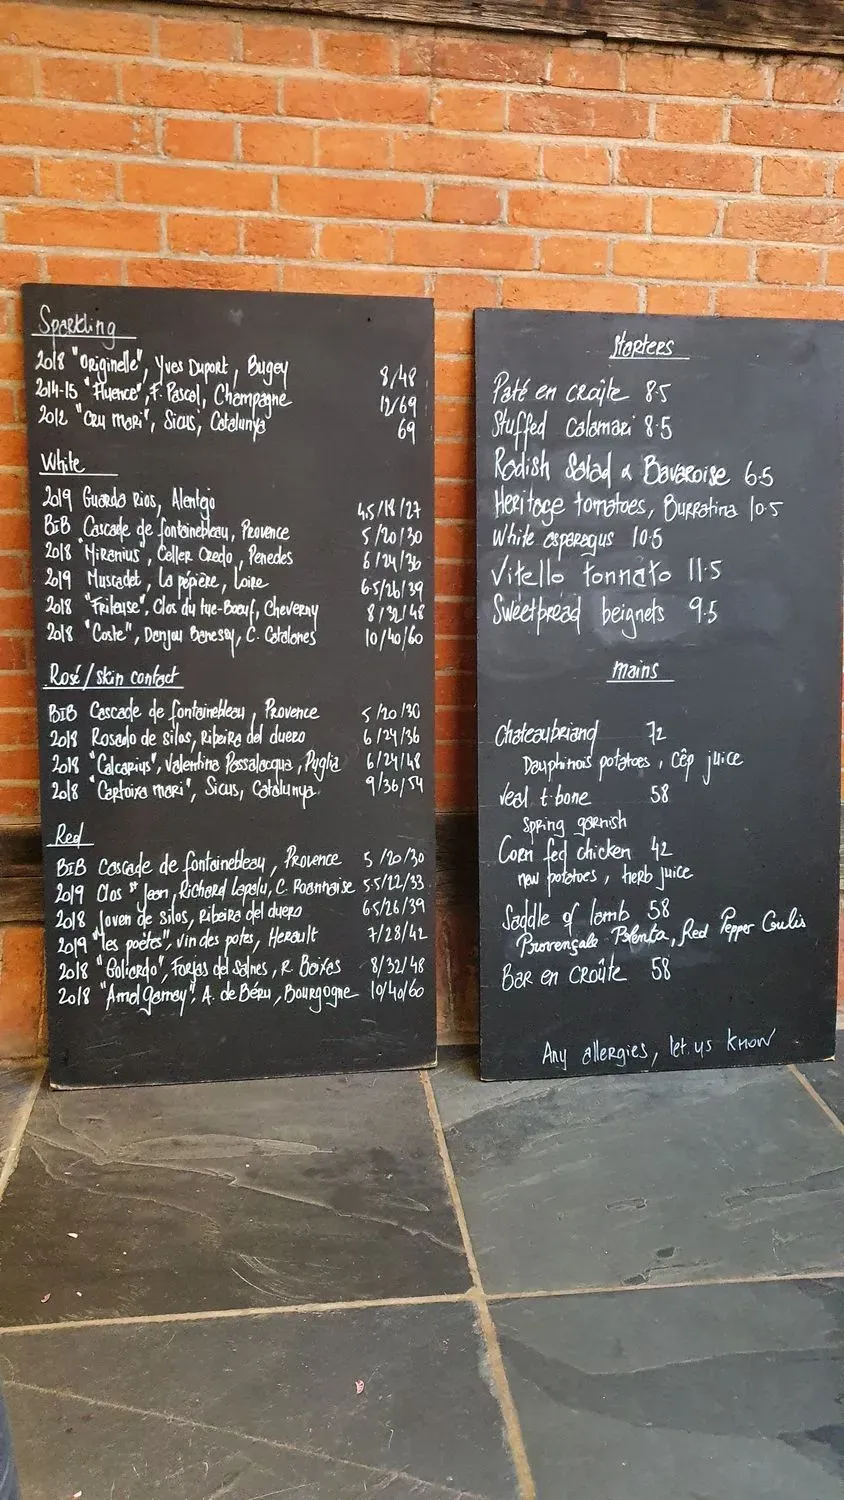 Sparkling
2018 "Originelle", Yves Duport, Bugey 8/48
2014-15 "Fluence", F. Pascal, Champagne 12/69
2012 "Cru mari", Sicus, Catalunya 69
White
2019 Guarda Rios, Alentejo 4.5/18/27
BIB Cascade de fontainebleau, Provence 5/20/30
2018 "Miranius", Celler Credo, Penedes 6/24/36
2019 Muscadet, La pépière, Loire 6.5/26/39
2018 "Frileuse", Clos du tue-Boeuf, Cheverny 8/32/48
2018 "Coste", Danjou Banessy, C. Catalanes 10/40/60
Rosé/skin contact
BIB Cascade de fontainebleau, Provence 5/20/30
2018 Rosado de silos, Ribeira del duero 6/24/36
2018 "Calcarius", Valentina Passalacqua, Puglia 6/24/48
2018 "Cartoixa mari", Sicus, Catalunya 9/36/54
Red
BIB Cascade de fontainebleau, Provence 5/20/30
2019 Clos St Jean, Richard Lapalu, C. Roannaise 5.5/22/33
2018 Joven de silos, Ribeira del duero 6.5/26/39
2019 "les poètes", vin des potes, Herault 7/28/42
2018 "Goliardo", Forjas del Salnes, R. Baixas 8/32/48
2018 "Amal gamay", A. de Béru, Bourgogne 10/40/60
Starters
Paté en croûte 8.5
Stuffed calamari 8.5
Radish Salad & Bavaroise 6.5
Heritage tomatoes, Burratina 10.5
White asparagus 10.5
Vitello tonnato 11.5
Sweetbread beignets 9.5
Mains
Chateaubriand 72
Dauphinois potatoes, Cêp juice
Veal t-bone 58
Spring garnish
Corn fed chicken 42
new potatoes, herb juice
Saddle of lamb 58
Provençale Polenta, Red Pepper Coulis
Bar en croûte 58
Any allergies, let us know